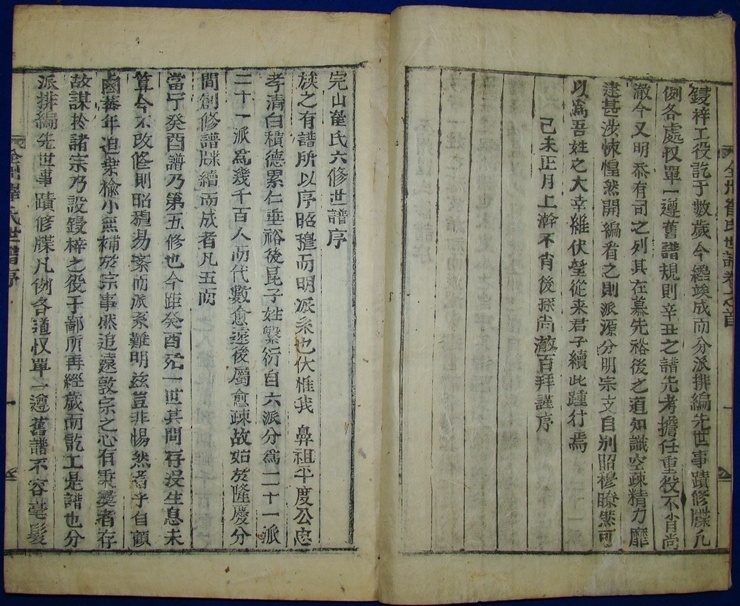 全州崔氏世譜卷之首
鋟梓工役訖于數歲今纔竣成而分派排編先世事蹟修牒凡
例各處収單一遵舊譜規則辛丑之譜先考擔任重役不肖尙
澈今又明忝有司之列其在慕先裕後之道知識空疎精力靡
逮甚涉悚惶然開編看之則派源分明宗支自別昭穆瞭然可
以爲吾姓之大幸維伏望從來君子續此踵行焉
己未正月上澣不肖後孫尙澈百拜謹序
完山崔氏六修世譜序
族之有譜所以序昭穆而明派系也伏惟我 鼻祖平度公忠
孝清白積德累仁垂裕後昆子姓繁衍自六派分爲二十一派
二十一派爲幾千百人而代數愈遠後屬愈疎故始於隆慶分
間創修譜牒續而成者凡五而
當宁癸酉譜乃第五修也今距癸酉殆一世其間存沒生息未
算今不改修則昭穆易紊而派系難明玆豈非惕然者乎自顧
鹵莽年迫桑楡小無補於宗事然追遠敦宗之心有秉彛者存
故謀於諸宗乃設鋟梓之役于鄙所再經歲而訖工是譜也分
派排編先世事蹟修牒凡例各道収單一遵舊譜不容毫髮
全州崔氏世譜序